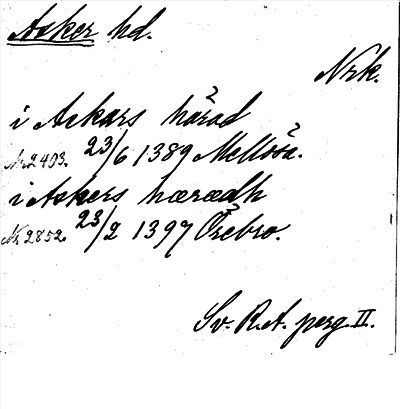 Asker hd.
Nrk.
i Askars härad
Nr 2403. 23/6 1389 Mellösa.
i Askers hæradh
Nr 2852. 23/2 1397 Örebro.
Sv. R.A. perg. II.